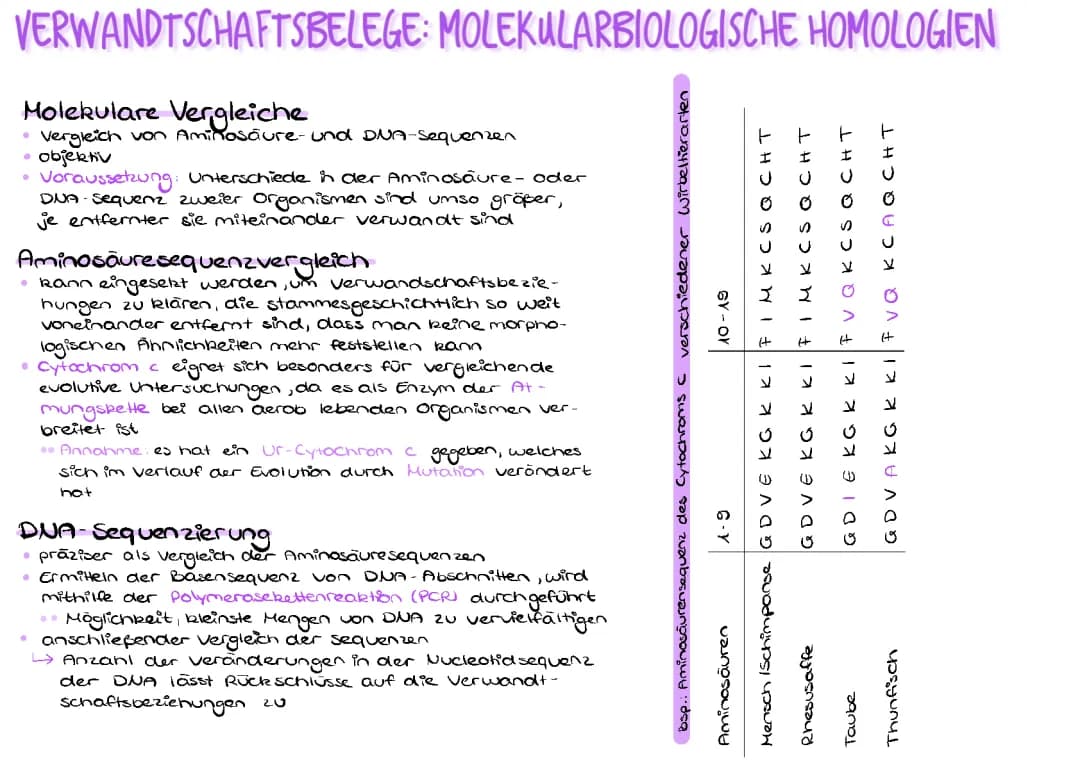 VERWANDTSCHAFTSBELEGE: MOLEKULARBIOLOGISCHE HOMOLOGIEN
Molekulare Vergleiche
• Vergleich von Aminosäure- und DNA-Sequenzen
• objektiv
• Voraussetzung: Unterschiede in der Aminosäure- oder
DNA-Sequenz zweier Organismen sind umso größer,
je entfernter sie miteinander verwandt sind
Aminosäuresequenzvergleich
• kann eingesetzt werden, um Verwandschaftsbezie-
hungen zu klären, die stammesgeschichtlich so weit
voneinander entfernt sind, dass man keine morpho-
logischen Ähnlichkeiten mehr feststellen kann
• Cytochrom c eignet sich besonders für vergleichende
evolutive Untersuchungen, da es als Enzym der At-
mungskette bei allen aerob lebenden Organismen ver-
breitet ist
•• Annahme: es hat ein Ur-Cytochrom c gegeben, welches
sich im Verlauf der Evolution durch Mutation verändert
hat
DNA-Sequenzierung
• präziser als Vergleich der Aminosäuresequenzen
• Ermitteln der Basensequenz von DNA-Abschnitten, wird
mithilfe der Polymerasekettenreaktion (PCR) durchgeführt
•• Möglichkeit, kleinste Mengen von DNA zu vervielfältigen
• anschließender Vergleich der Sequenzen
↳ Anzahl der Veränderungen in der Nucleotidsequenz
der DNA lässt Rückschlüsse auf die Verwandt-
schaftsbeziehungen zu
Bsp.: Aminosäurensequenz des Cytochroms c verschiedener Wirbeltierarten
Aminosäuren 1-9 10-19
Mensch/Schimpanse G D V E K G K K I F I M K C S Q C H T
Rhesusaffe G D V E K G K K I F I M K C S Q C H T
Taube G D I E K G K K I F V Q K C S Q C H T
Thunfisch G D V A K G K K I F V Q K C A Q C H T